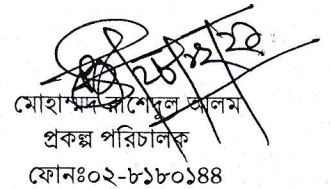 ২০ ১২ ২০
মোহাম্মদ রাশেদুল আলম
প্রকল্প পরিচালক
ফোনঃ০২-৮১৮০১৪৪